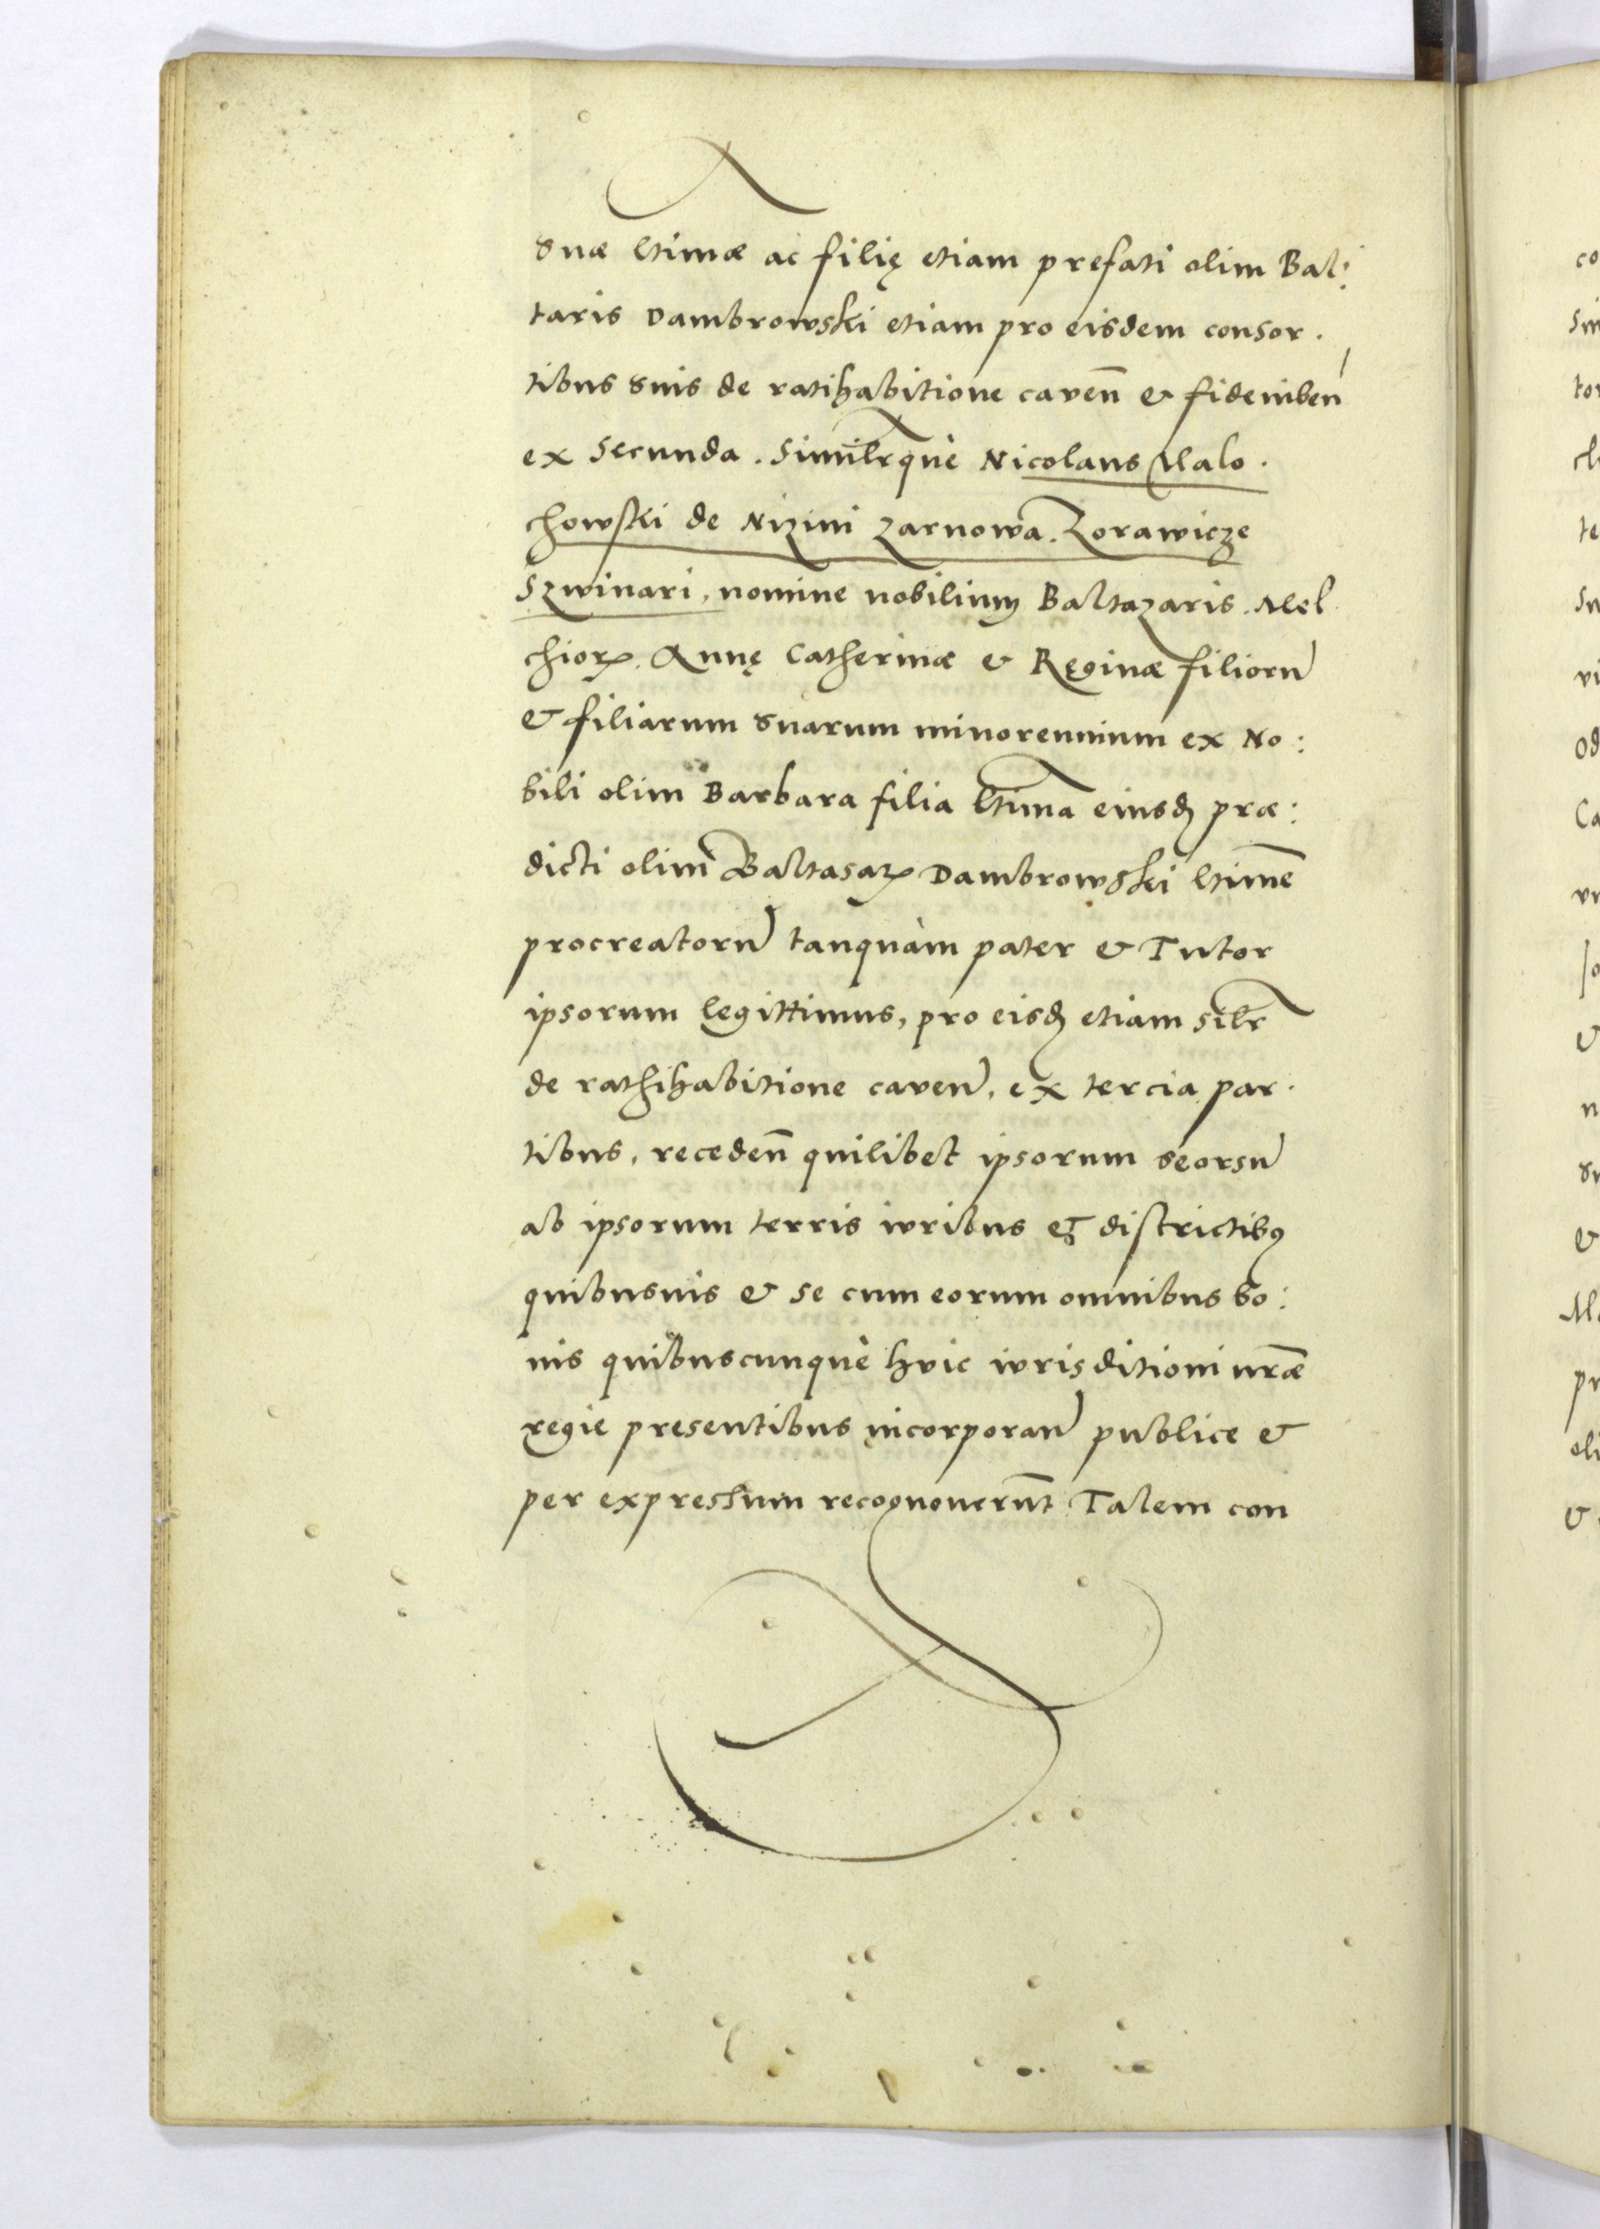 suæ ltimæ ac filię etiam prefati olim Bal:
taris Dambrowski etiam pro eisdem consor.
tibus suis de ratihabitione caveñ & fideiuben
ex secunda. Similrque Nicolaus Malo.
chowski de Nizini Zarnowa. Zorawicze
Szwinari, nomine nobilium Baltazaris. Mel
chior. Annę Catherinæ & Reginæ filiorū
& filiarum suarum minorennium ex No:
bili olim Barbara filia ltima eiusd præ:
dicti olim Baltasar Dambrowski ltime
procreatorū tanquàm pater & Tutor
ipsorum legittimus, pro eisd etiam silr
de rathihabitione caven, ex tercia par.
tibus, recedeñ quilibet ipsorum seorsū
ab ipsorum terris iuribus & districtibus
quibusuis & se cum eorum omnibus bo:
nis quibuscunquè huic iurisditioni nræ
regie presentibus incorporan publice &
per expressum recognouerūt Talem con